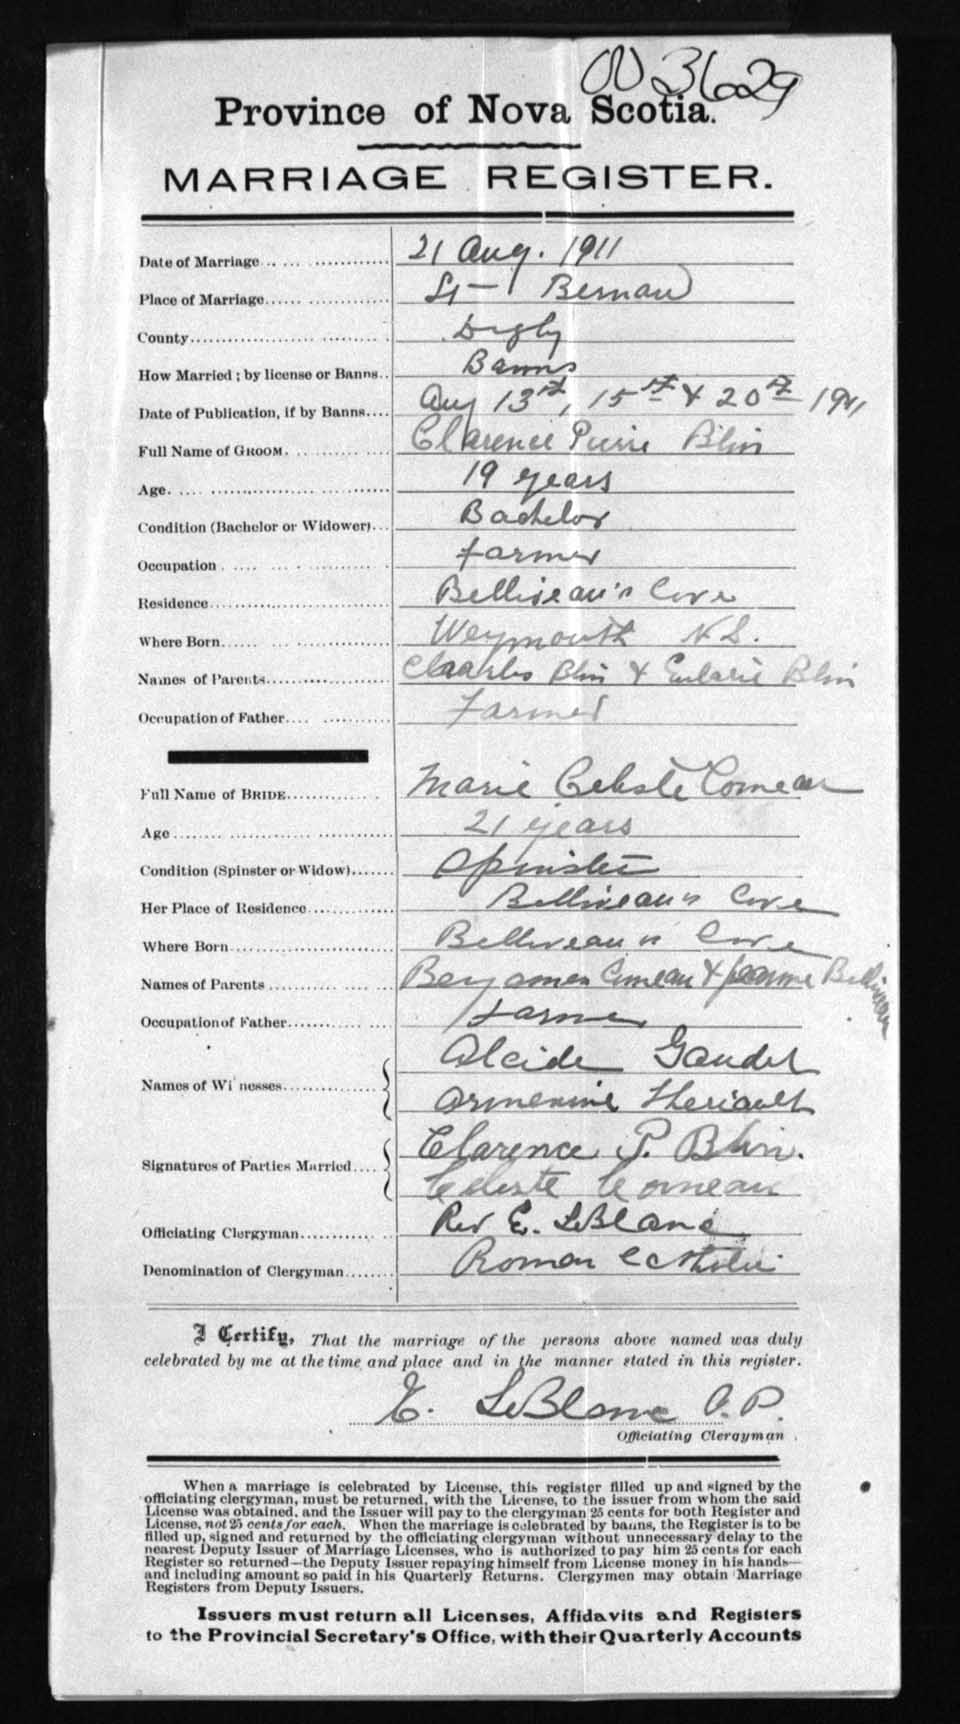 3629
Province of Nova Scotia.
MARRIAGE REGISTER.
Date of Marriage 21 Aug. 1911
Place of Marriage St Bernard
County Digby
How Married ; by license or Banns Banns
Date of Publication, if by Banns Aug 13th, 15th & 20th 1911
Full Name of GROOM Clarence Pierre Blin
Age 19 years
Condition (Bachelor or Widower) Bachelor
Occupation Farmer
Residence Belliveau's Cove
Where Born Weymouth N.S.
Names of Parents Charles Blin & Eularie Blin
Occupation of Father Farmer
Full Name of BRIDE Marie Celeste Comeau
Age 21 years
Condition (Spinster or Widow) Spinster
Her Place of Residence Belliveau's Cove
Where Born Belliveau's Cove
Names of Parents Benjamen Comeau & Jeanne Belliveau
Occupation of Father Farmer
Names of Witnesses Alcide Gaudet
Armenine Theriault
Signatures of Parties Married Clarence P. Blin.
Celeste Comeau
Officiating Clergyman Rev E. LeBlanc
Denomination of Clergyman Roman Catholic
I Certify, That the marriage of the persons above named was duly
celebrated by me at the time and place and in the manner stated in this register.
E. LeBlanc P.P.
Officiating Clergyman
When a marriage is celebrated by License, this register filled up and signed by the
officiating clergyman, must be returned, with the License, to the issuer from whom the said
License was obtained, and the Issuer will pay to the clergyman 25 cents for both Register and
License, not 25 cents for each. When the marriage is celebrated by banns, the Register is to be
filled up, signed and returned by the officiating clergyman without unnecessary delay to the
nearest Deputy Issuer of Marriage Licenses, who is authorized to pay him 25 cents for each
Register so returned—the Deputy Issuer repaying himself from License money in his hands—
and including amount so paid in his Quarterly Returns. Clergymen may obtain Marriage
Registers from Deputy Issuers.
Issuers must return all Licenses, Affidavits and Registers
to the Provincial Secretary's Office, with their Quarterly Accounts